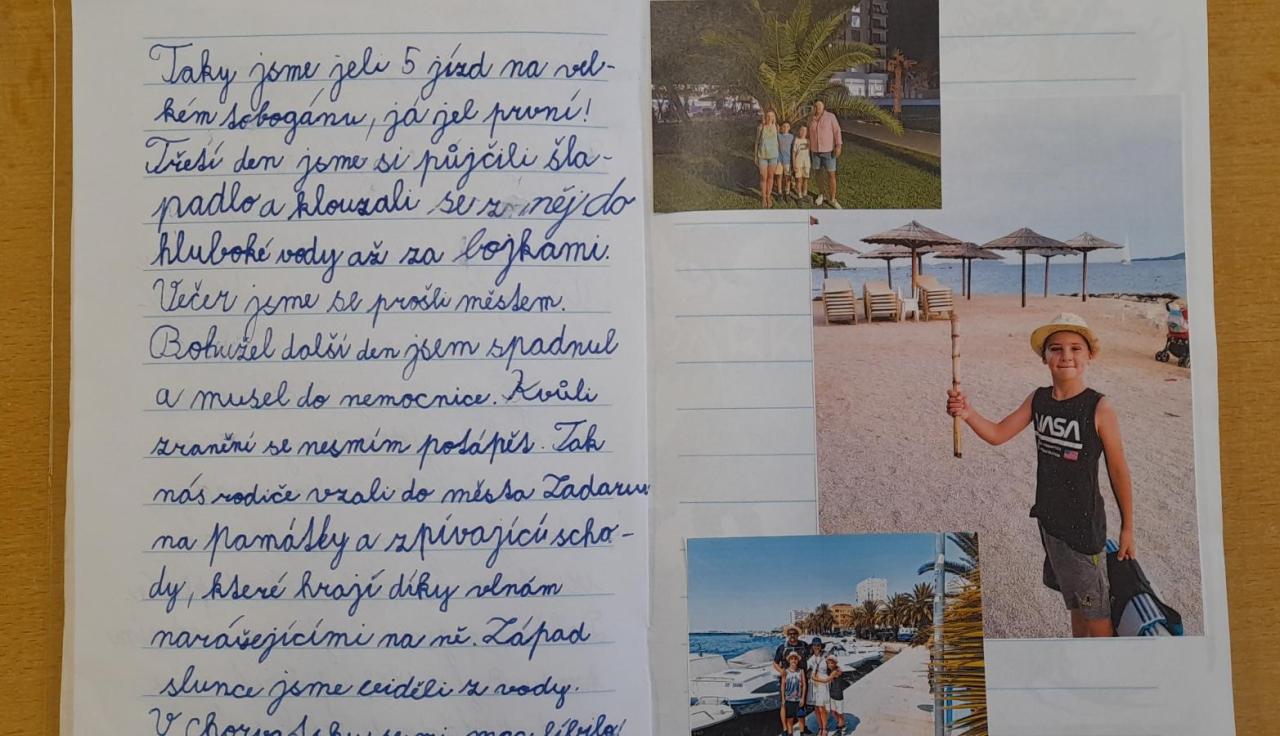 Taky jsme jeli 5 jízd na vel-
kém tobogánu, já jel první!
Třetí den jsme si půjčili šla-
padlo a klouzali se z něj do
hluboké vody až za bojkami.
Večer jsme se prošli městem.
Bohužel další den jsem spadnul
a musel do nemocnice. Kvůli
zranění se nesmím potápět. Tak
nás rodiče vzali do města Zadaru
na památky a zpívající scho-
dy, které hrají díky vlnám
narážejícími na ně. Západ
slunce jsme viděli z vody.
V Chorvatsku se mi moc líbilo!
NASA